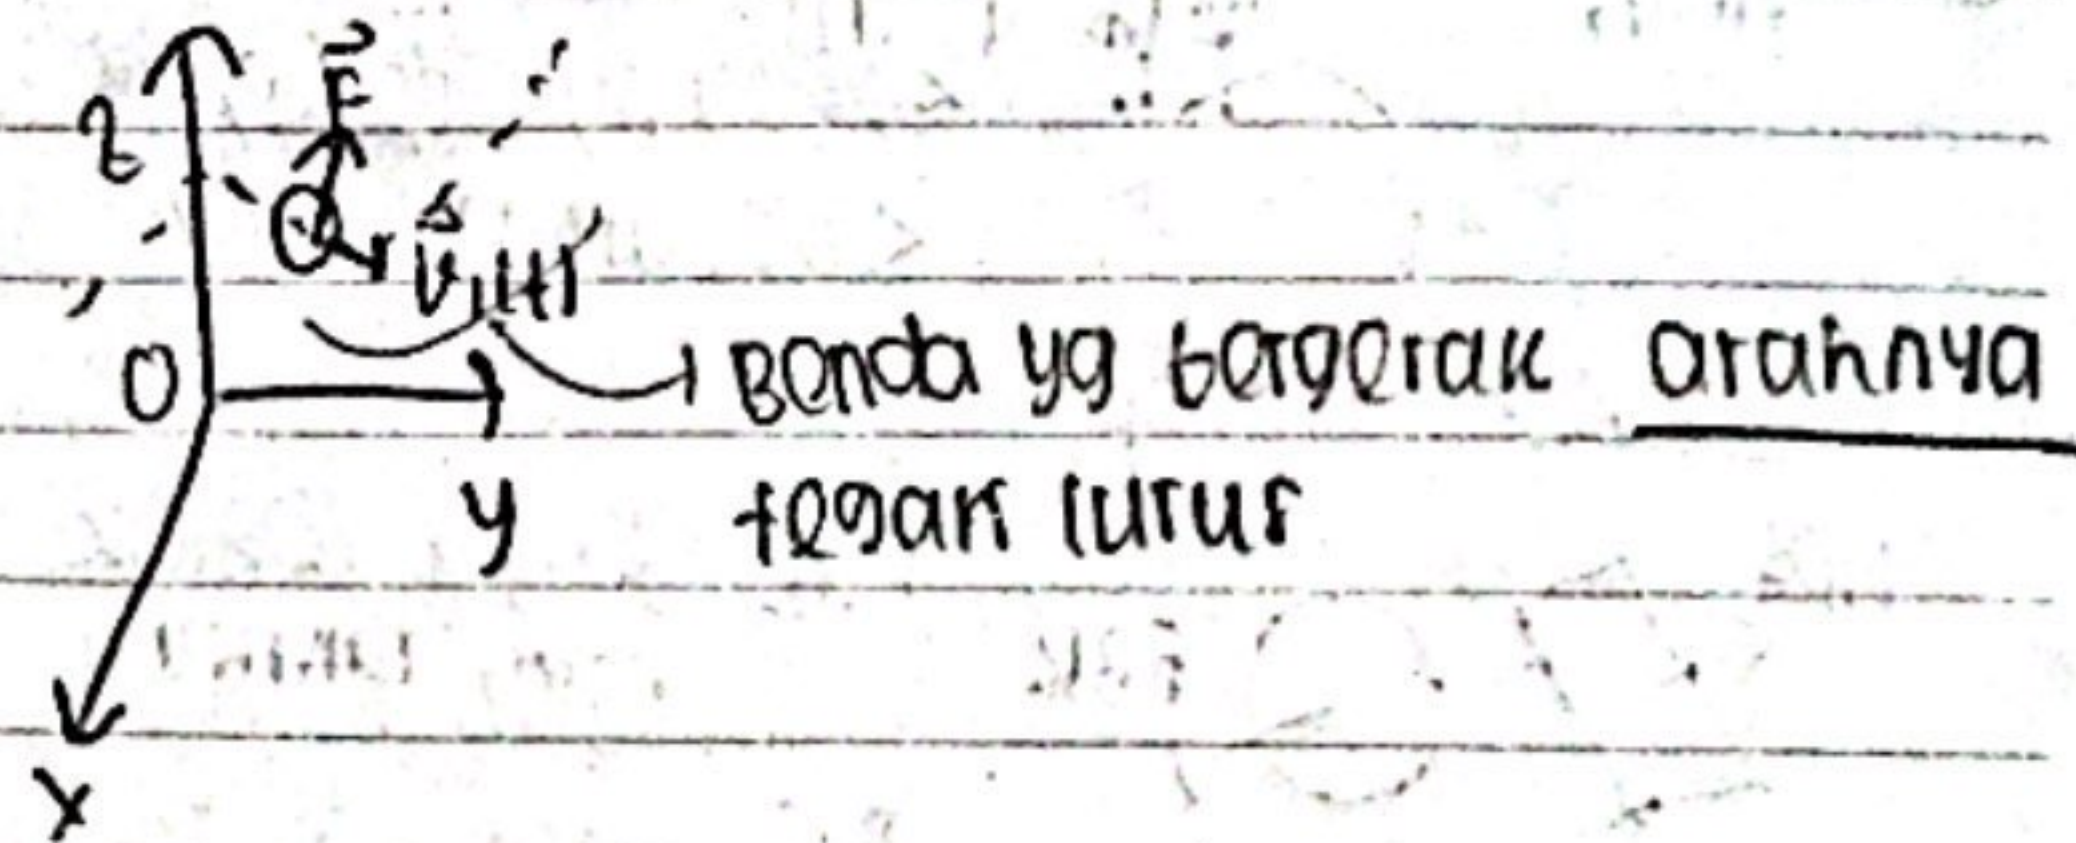 z F
v₁(t)
O Benda yg bergerak arahnya
y tegak lurus
x